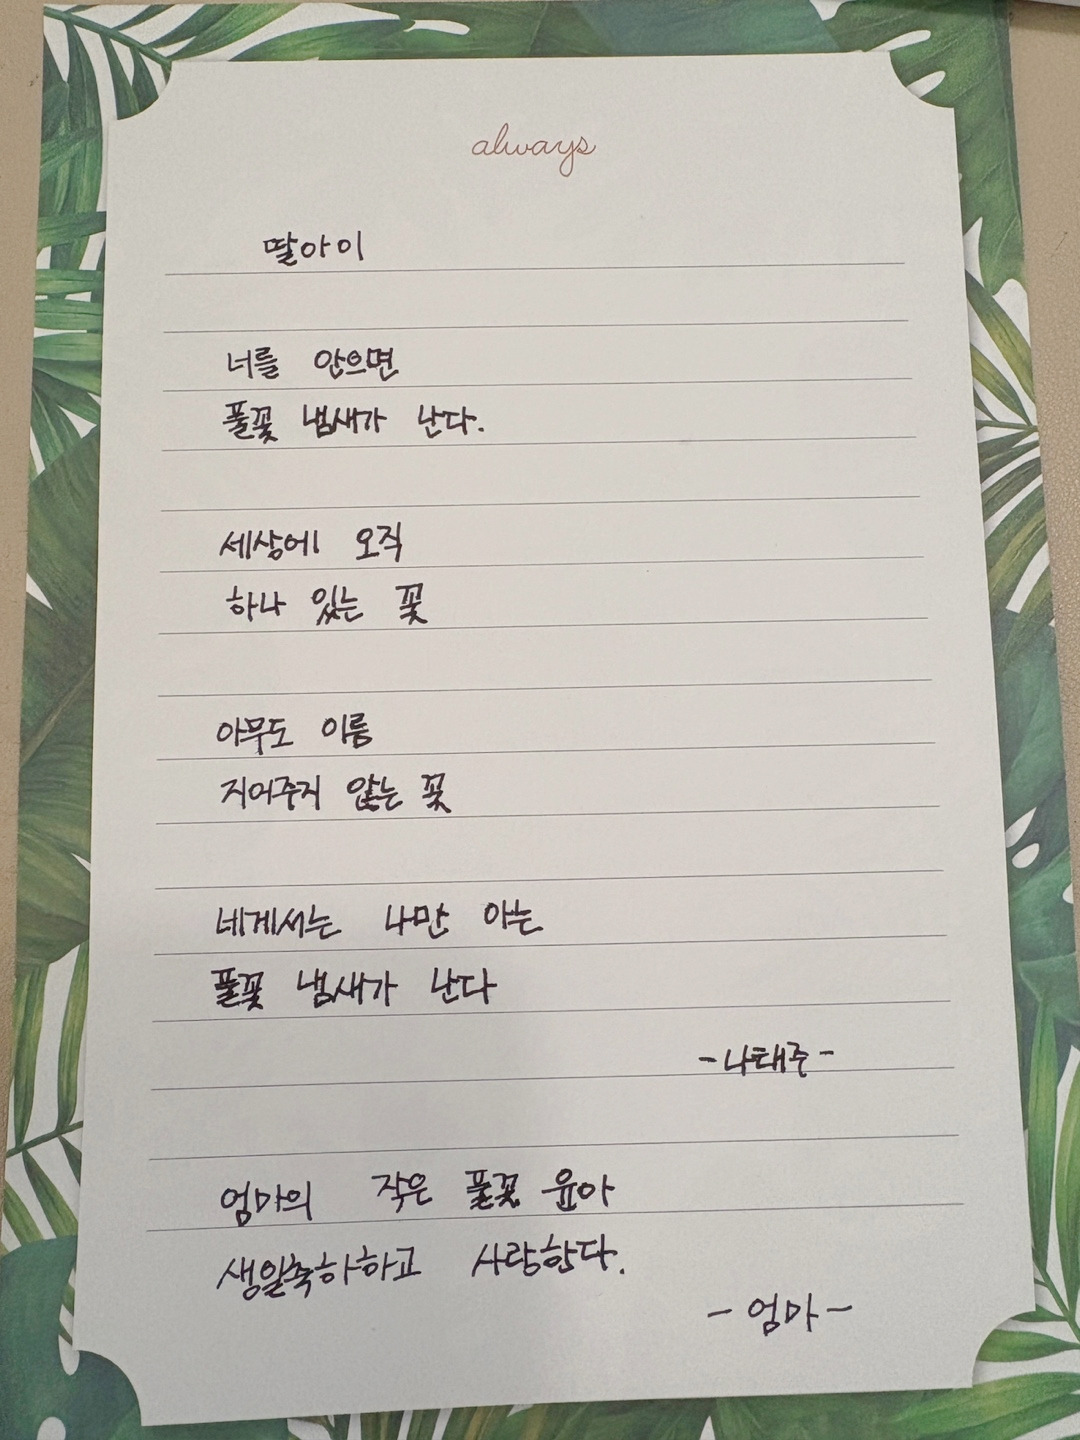 always
딸아이
너를 안으면
풀꽃 냄새가 난다.
세상에 오직
하나 있는 꽃
아무도 이름
지어주지 않는 꽃
네게서는 나만 아는
풀꽃 냄새가 난다
-나태주-
엄마의 작은 풀꽃 윤아
생일축하하고 사랑한다.
- 엄마 -